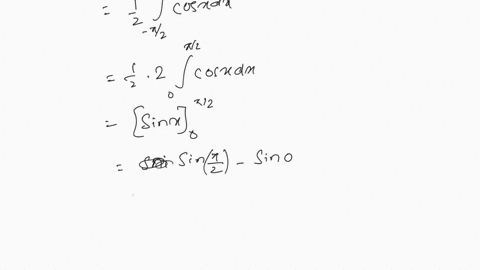 = 1/2 ∫_{-π/2} cosxdx
= 1/2 · 2 ∫_0^{π/2} cosxdx
= [Sinx]_0^{π/2}
= Sin(π/2) - Sin0